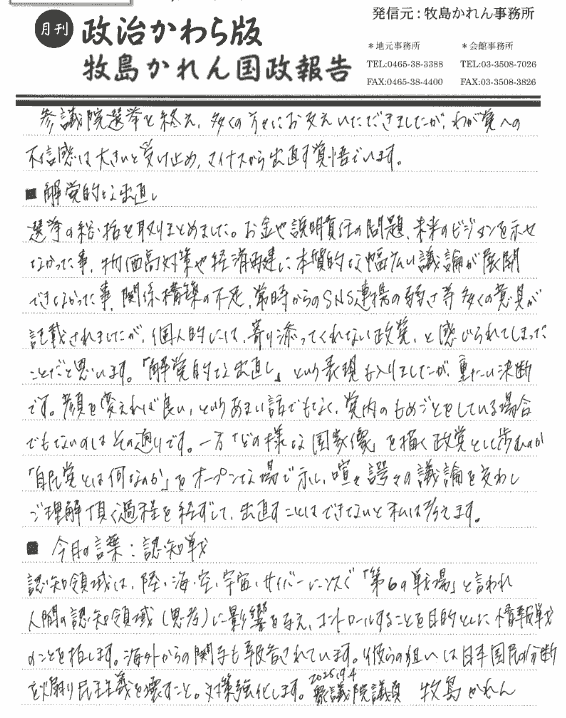 発信元：牧島かれん事務所
月刊 政治かわら版
牧島かれん国政報告
＊地元事務所 ＊会館事務所
TEL:0465-38-3388 TEL:03-3508-7026
FAX:0465-38-4400 FAX:03-3508-3826
参議院選挙を終え、多くの方々にお支えいただきましたが、わが党への
不信感は大きいと受け止め、マイナスから出直す覚悟でいます。
■ 解党的な出直し
選挙の総括を取りまとめました。お金や説明責任の問題、未来のビジョンを示せ
なかった事、物価高対策や経済再建に本質的な幅広い議論が展開
できなかった事、関係構築の不足、常時からのSNS連携の弱さ等多くの意見が
記載されましたが、個人的には、寄り添ってくれない政党、と感じられてしまった
ことだと思います。「解党的な出直し」という表現も入りましたが、重たい決断
です。顔を変えれば良い、というあまい話でもなく、党内のもめごとをしている場合
でもないのはその通りです。一方「どの様な国家像」を描く政党として歩むのか
「自民党とは何なのか」をオープンな場で示し、喧々諤々の議論を交わし
ご理解頂く過程を経ずして、出直すことはできないと私は考えます。
■ 今月の言葉：認知戦
認知領域は、陸・海・空・宇宙・サイバーに次ぐ「第6の戦場」と言われ
人間の認知領域（思考）に影響を与え、コントロールすることを目的とした情報戦
のことを指します。海外からの関与も報告されています。彼らの狙いは日本国民の分断
を煽り民主主義を壊すこと。対策強化します。
2025.9.4
衆議院議員 牧島かれん